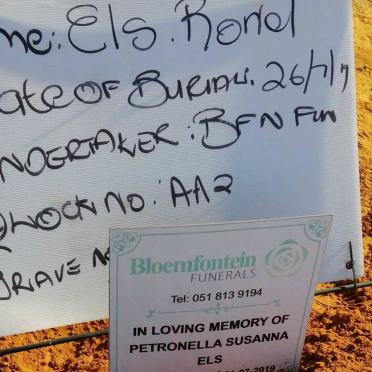 me: Els. Ronel
ate OF BURIAL. 26/7/19
NDERTAKER: BFN FUN
BLOCK NO: AA2
GRAVE N
Bloemfontein
FUNERALS
Tel: 051 813 9194
IN LOVING MEMORY OF
PETRONELLA SUSANNA
ELS
-07-2019